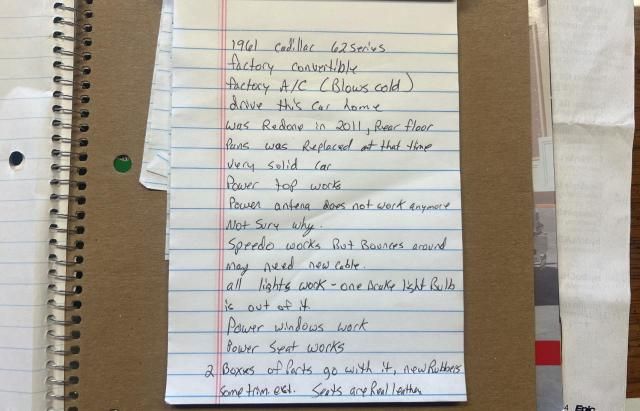 1961 Cadillac 62 series
factory convertible
factory A/C (Blows cold)
drive this car home
was Redone in 2011, Rear floor
Pans was Replaced at that time
very solid car
Power top works
Power antena does not work anymore
Not Sury why.
Speedo works But Bounces around
may need new cable.
all lights work - one brake light Bulb
is out of it.
Power windows work
Power Seat works
2 Boxes of Parts go with it, new Rubbers
some trim ext. Seats are Real leather